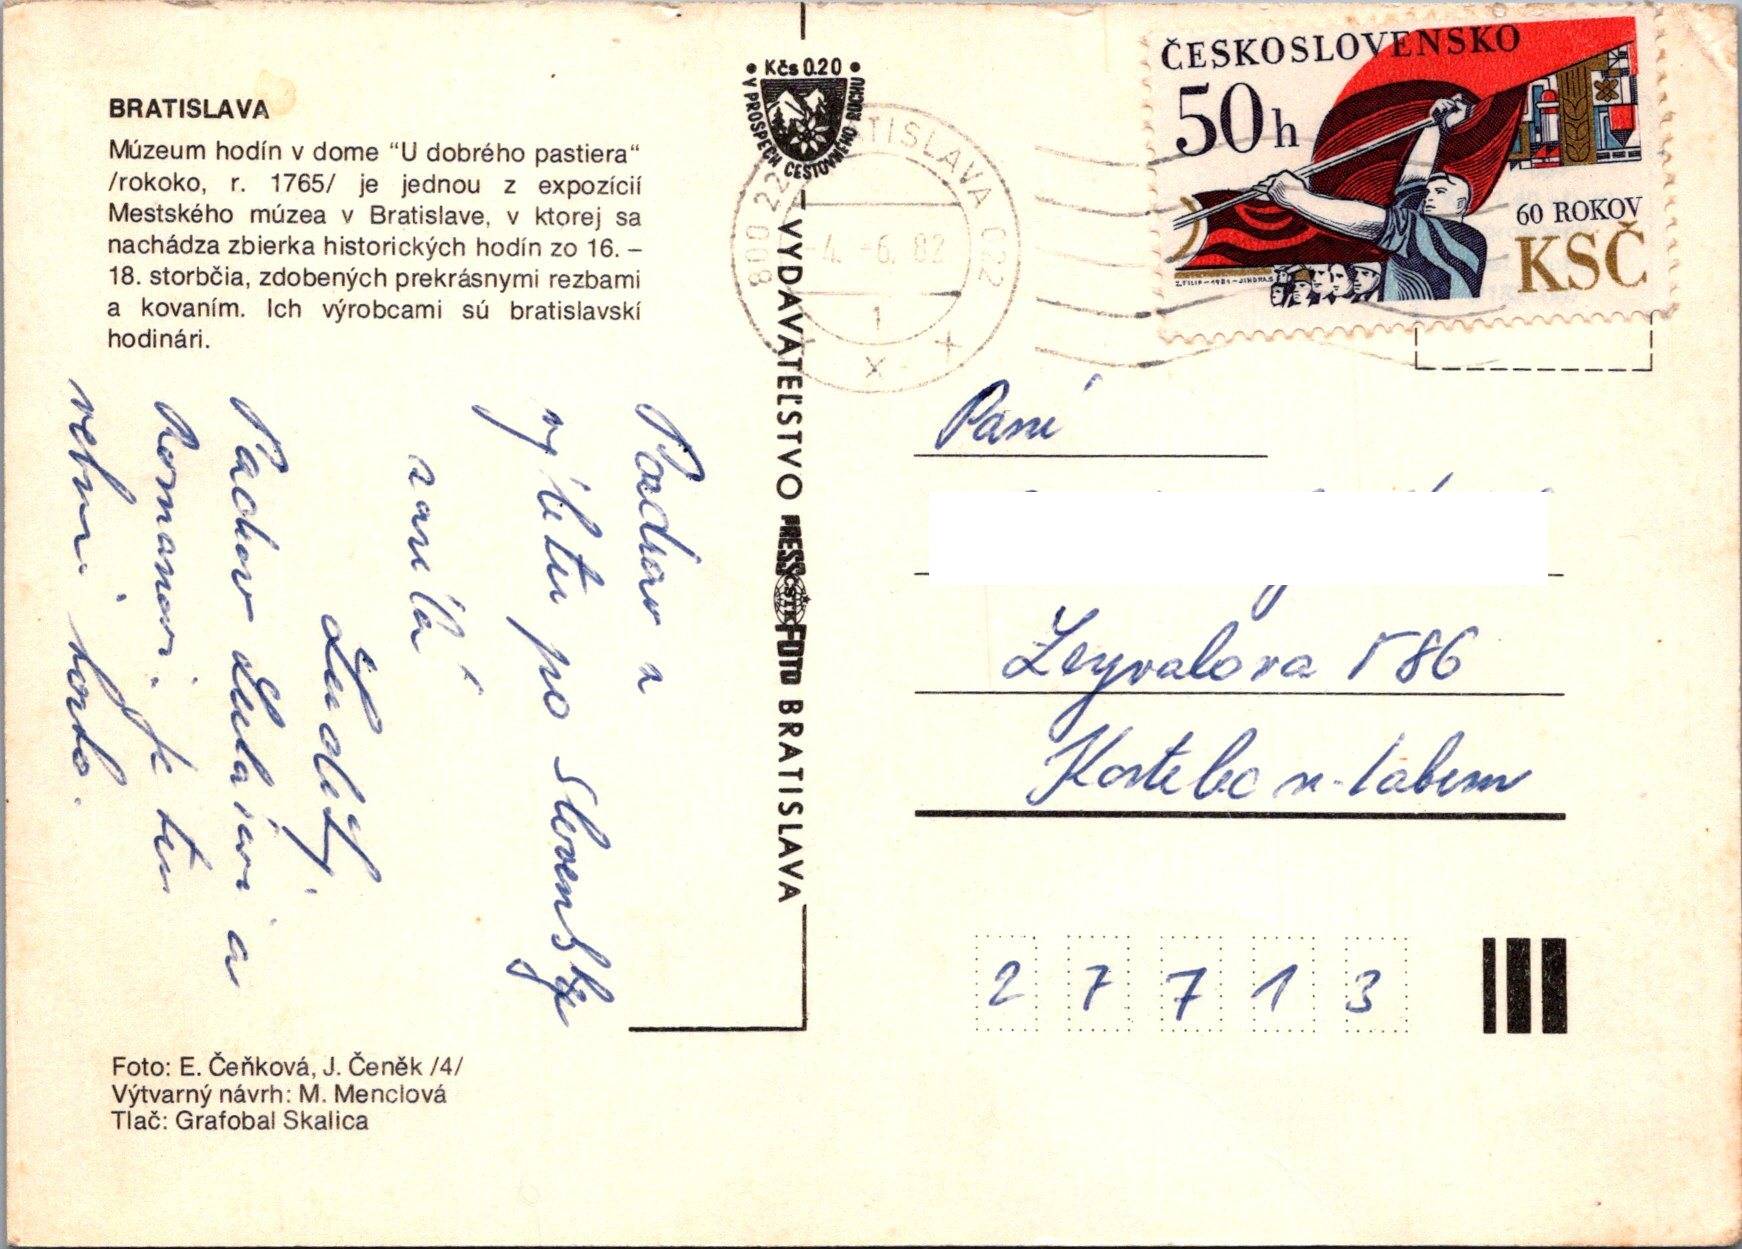 BRATISLAVA
Múzeum hodín v dome “U dobrého pastiera“
/rokoko, r. 1765/ je jednou z expozícií
Mestského múzea v Bratislave, v ktorej sa
nachádza zbierka historických hodín zo 16. –
18. storbčia, zdobených prekrásnymi rezbami
a kovaním. Ich výrobcami sú bratislavskí
hodinári.
Pozdrav z
výletu po Slovensku
zasílá
Pachov
a
Romanovi. Je tu
velmi horko.
Foto: E. Čeňková, J. Čeněk /4/
Výtvarný návrh: M. Menclová
Tlač: Grafobal Skalica
Kčs 0.20
V PROSPECH CESTOVNÉHO RUCHU
VYDAVATEĽSTVO PRESSFOTO BRATISLAVA
ČSTK
800 22 BRATISLAVA 022
-4.-6.82
1
x x
ČESKOSLOVENSKO
50h
60 ROKOV
KSČ
Z.FILIP–1981–JINDRA.S
Paní
586
Kostelec n. Labem
27713